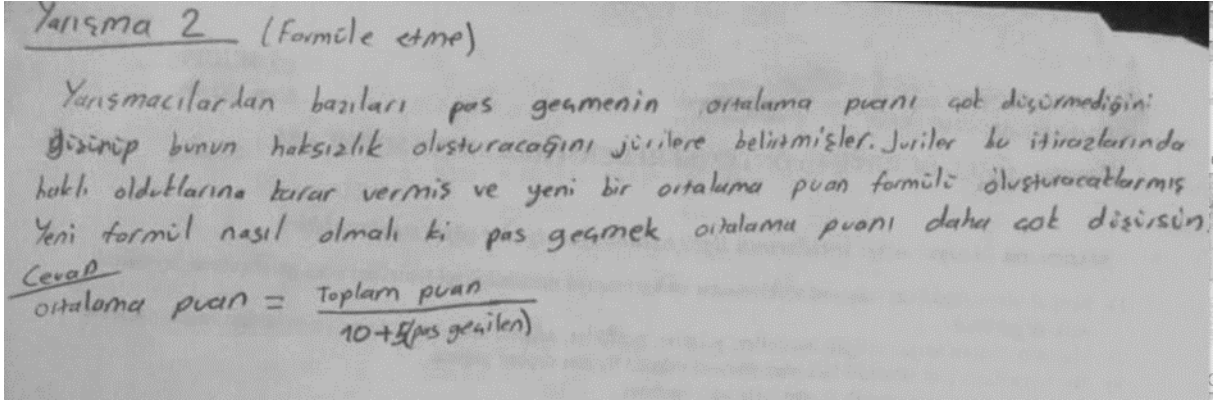 Yarışma 2 (Formüle etme)
Yarışmacılardan bazıları pas geçmenin ortalama puanı çok düşürmediğini
düşünüp bunun haksızlık oluşturacağını jürilere belirtmişler. Juriler bu itirazlarında
haklı olduklarına karar vermiş ve yeni bir ortalama puan formülü oluşturacaklarmış
Yeni formül nasıl olmalı ki pas geçmek ortalama puanı daha çok düşürsün
Cevap
ortalama puan = Toplam puan / 10+5(pas geçilen)